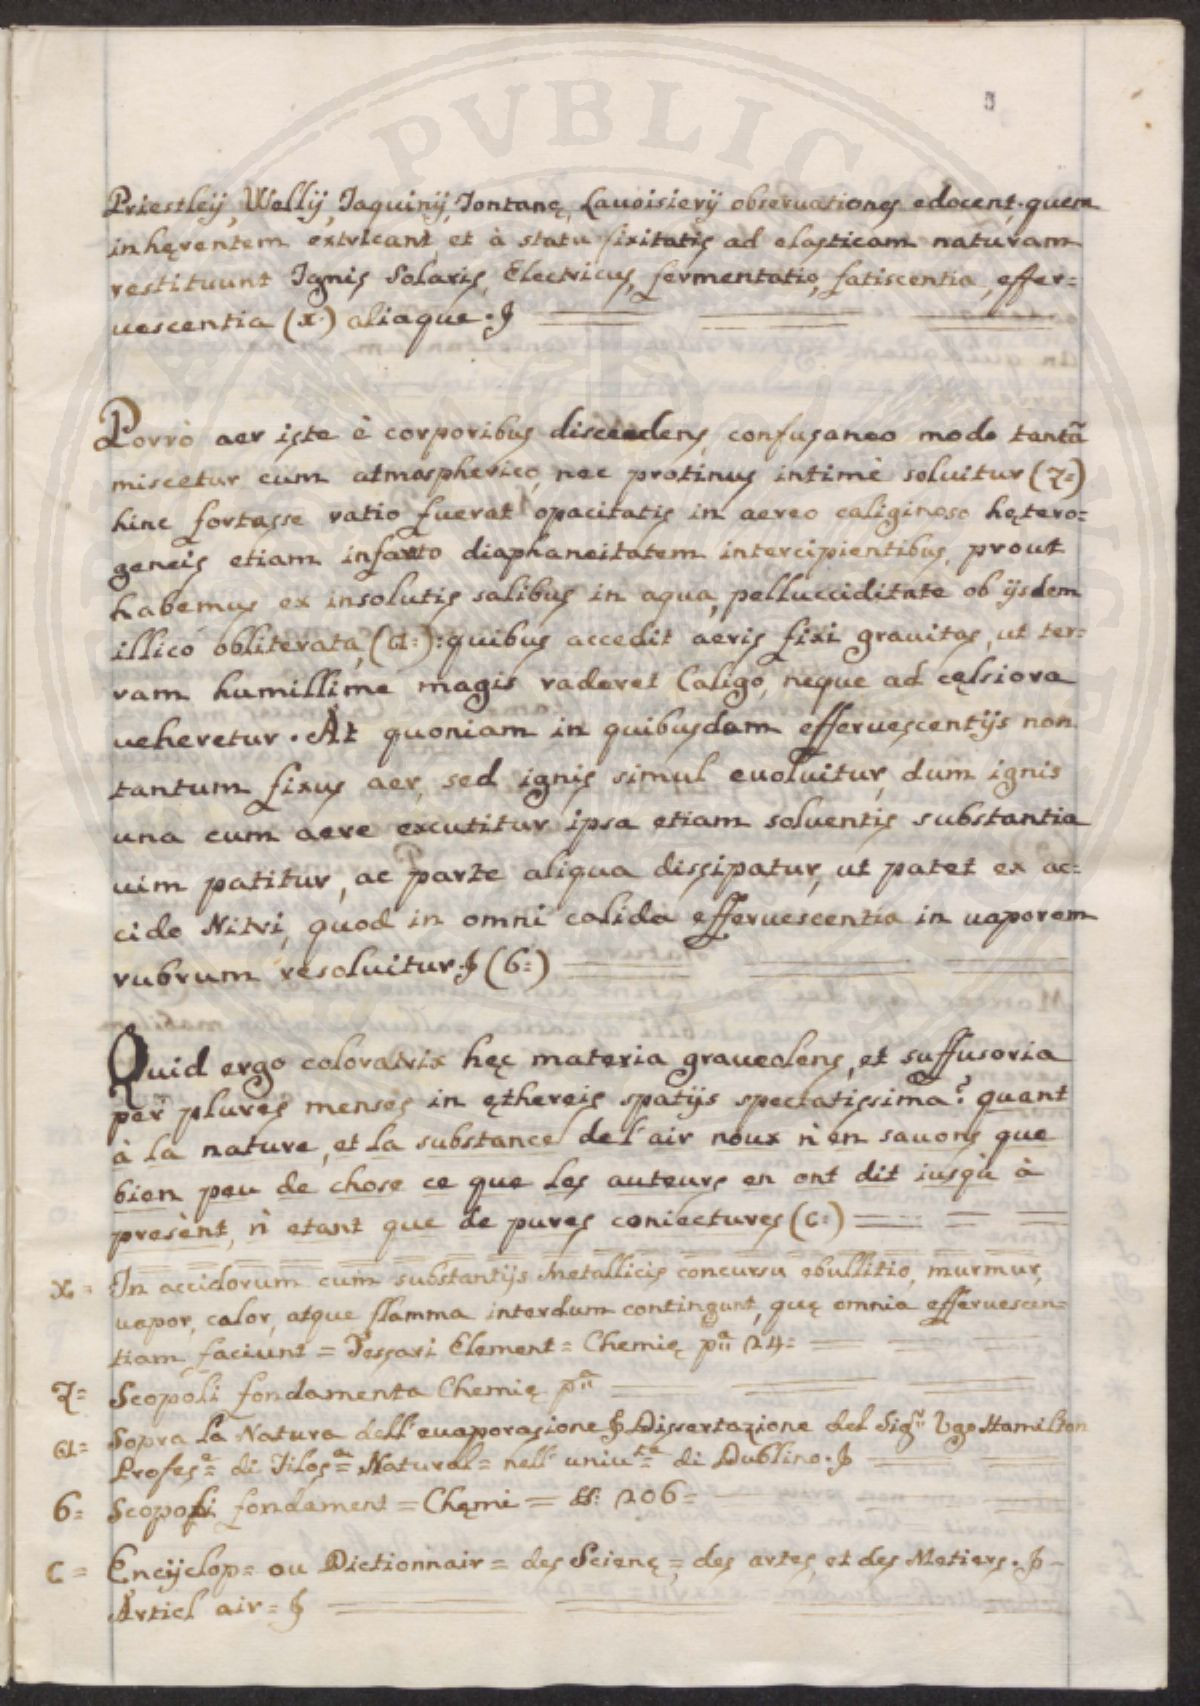 Priestleij, Wellij, Jaquinij, Fontanę, Lauoisierij obseruationes edocent, quem
inhęrentem extricant, et à statu fixitatis ad elasticam naturam
restituunt Ignis Solaris, Electricus, fermentatio, fatiscentia, effer=
uescentia (x.) aliaque.
Porrò aer iste è corporibus discedens, confusaneo modo tantã
miscetur cum atmospherico, nec protinus intimè soluitur (z=)
hinc fortasse ratio fuerat opacitatis in aereo caliginoso hętero=
geneis etiam infarto diaphaneitatem intercipientibus, prout
habemus ex insolutis salibus in aqua, pellucciditate ob ijsdem
illico obliterata, (a=): quibus accedit aeris fixi grauitas, ut ter=
ram humillime magis raderet Caligo, neque ad cęlsiora
ueheretur. At quoniam in quibusdam efferuescentijs non
tantum fixus aer, sed ignis simul euoluitur, dum ignis
una cum aere excutitur ipsa etiam soluentis substantia
uim patitur, ac parte aliqua dissipatur, ut patet ex ac=
cido Nitri, quod in omni calida efferuescentia in uaporem
rubrum resoluitur. (b=)
Quid ergo coloratrix hęc materia graueolens, et suffusoria
per plures menses in ęthereis spatijs spectatissima? quant
à la nature, et la substance de l'air noux n'en sauons que
bien peu de chose ce que les auteurs en ont dit iusqu à
presènt, n'etant que de pures coniectures (c=)
x= In accidorum cum substantijs Metallicis concursu ebullitio, murmur,
uapor, calor, atque flamma interdum contingunt, quę omnia efferuescen=
tiam faciunt = Tessari Element = Chemię pᵃ 124=
z= Scopoli fondamenta Chemię pᵃ
a= Sopra la Natura dell'euaporasione Dissertazione del Sigʳ Vgo Hamilton
Profesᵉ= di Filosᵃ= Natural= nell' uniuᵗᵃ= di Dublino.
b= Scopoli fondament = Chęmi = §§: 206=
c= Encijclop= ou Dictionnair= des Scienę= des artes, et des Metiers.
Articl air=